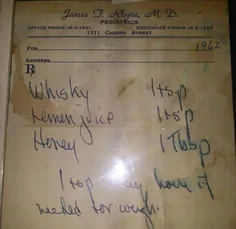 James T. Rhyne, M. D.
PEDIATRICS
OFFICE PHONE RESIDENCE PHONE
1111 CHERRY STREET
FOR 1962
ADDRESS
℞
Whisky 1tsp
Lemon juice 1tsp
Honey 1Tbsp
1tsp hour if
needed for cough